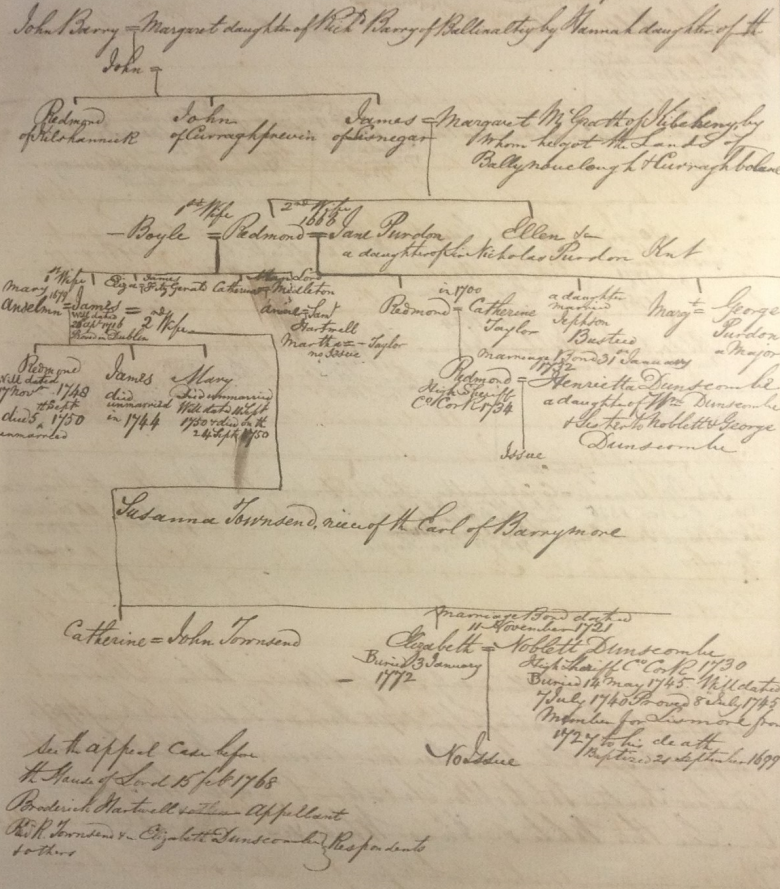 John Barry = Margaret daughter of Richd Barry of Ballinaltig by Hannah daughter of th
John =
Redmond
of Kilshannick
John
of Curraghprevin
James
of Lisnegar
= Margaret McGrath of by
whom he got the Lands of
Ballynouclough & Curraghbolane
1st Wife
2nd Wife
1668
– Boyle = Redmond = Jane Purdon
a daughter of Sir Nicholas Purdon Knt
Ellen &c
1st Wife
Mary
Anselm
1699
= James = 2nd Wife
Will dated
1716
Prov'd in Dublin
Eliza
James
FitzGerald
Catherine =
Middleton
Anne =
Hartwell
Martha = – Taylor
no issue
Redmond
in 1700
Catherine
Taylor
a daughter
married
Jephson
Busteed
Mary = George
Purdon
a Major
Redmond
Will dated
7 Novr 1748
died Sept
1750
unmarried
James
died
unmarried
in 1744
Mary
died unmarried
Will dated 14 Sept
1750 & died on th
24 Sept 1750
marriage 31st January
1732
Redmond =
High Sheriff
Co Cork 1734
Henrietta Dunscombe
a daughter of Wm Dunscombe
& Sister to Noblett & George
Dunscombe
Issue
Susanna Townsend, niece of th Earl of Barrymore
Catherine = John Townsend
marriage Bond dated
11 November 1721
Elizabeth =
Buried 3 January
1772
Noblett Dunscombe
High Sheriff Co Cork 1730
Buried 14 May 1745 Will dated
7 July 1740 Proved 8 July 1745
Member for Lismore from
1727 to his death
Baptized 21 September 1699
No Issue
See th appeal Case before
th House of Lords 15 feb 1768
Broderick Hartwell Appellant
Rd R. Townsend & Elizabeth Dunscombe } Respondents
& others